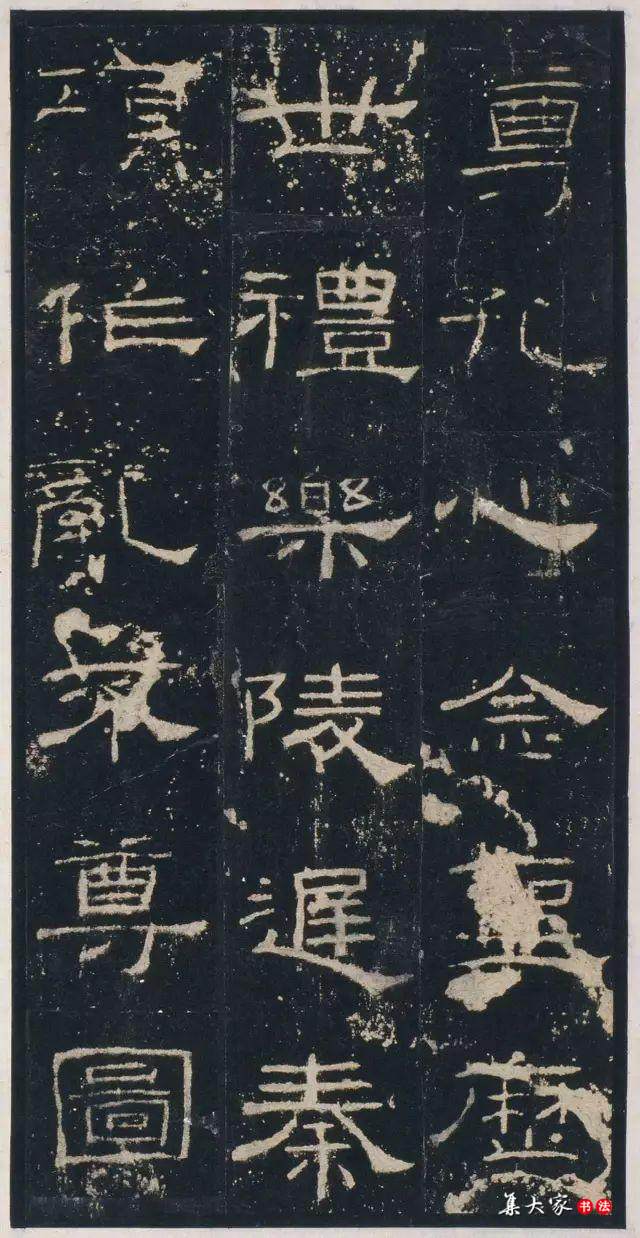 尊孔心念聖歷
世禮樂陵遲秦
項作亂不尊圖
集大家书法